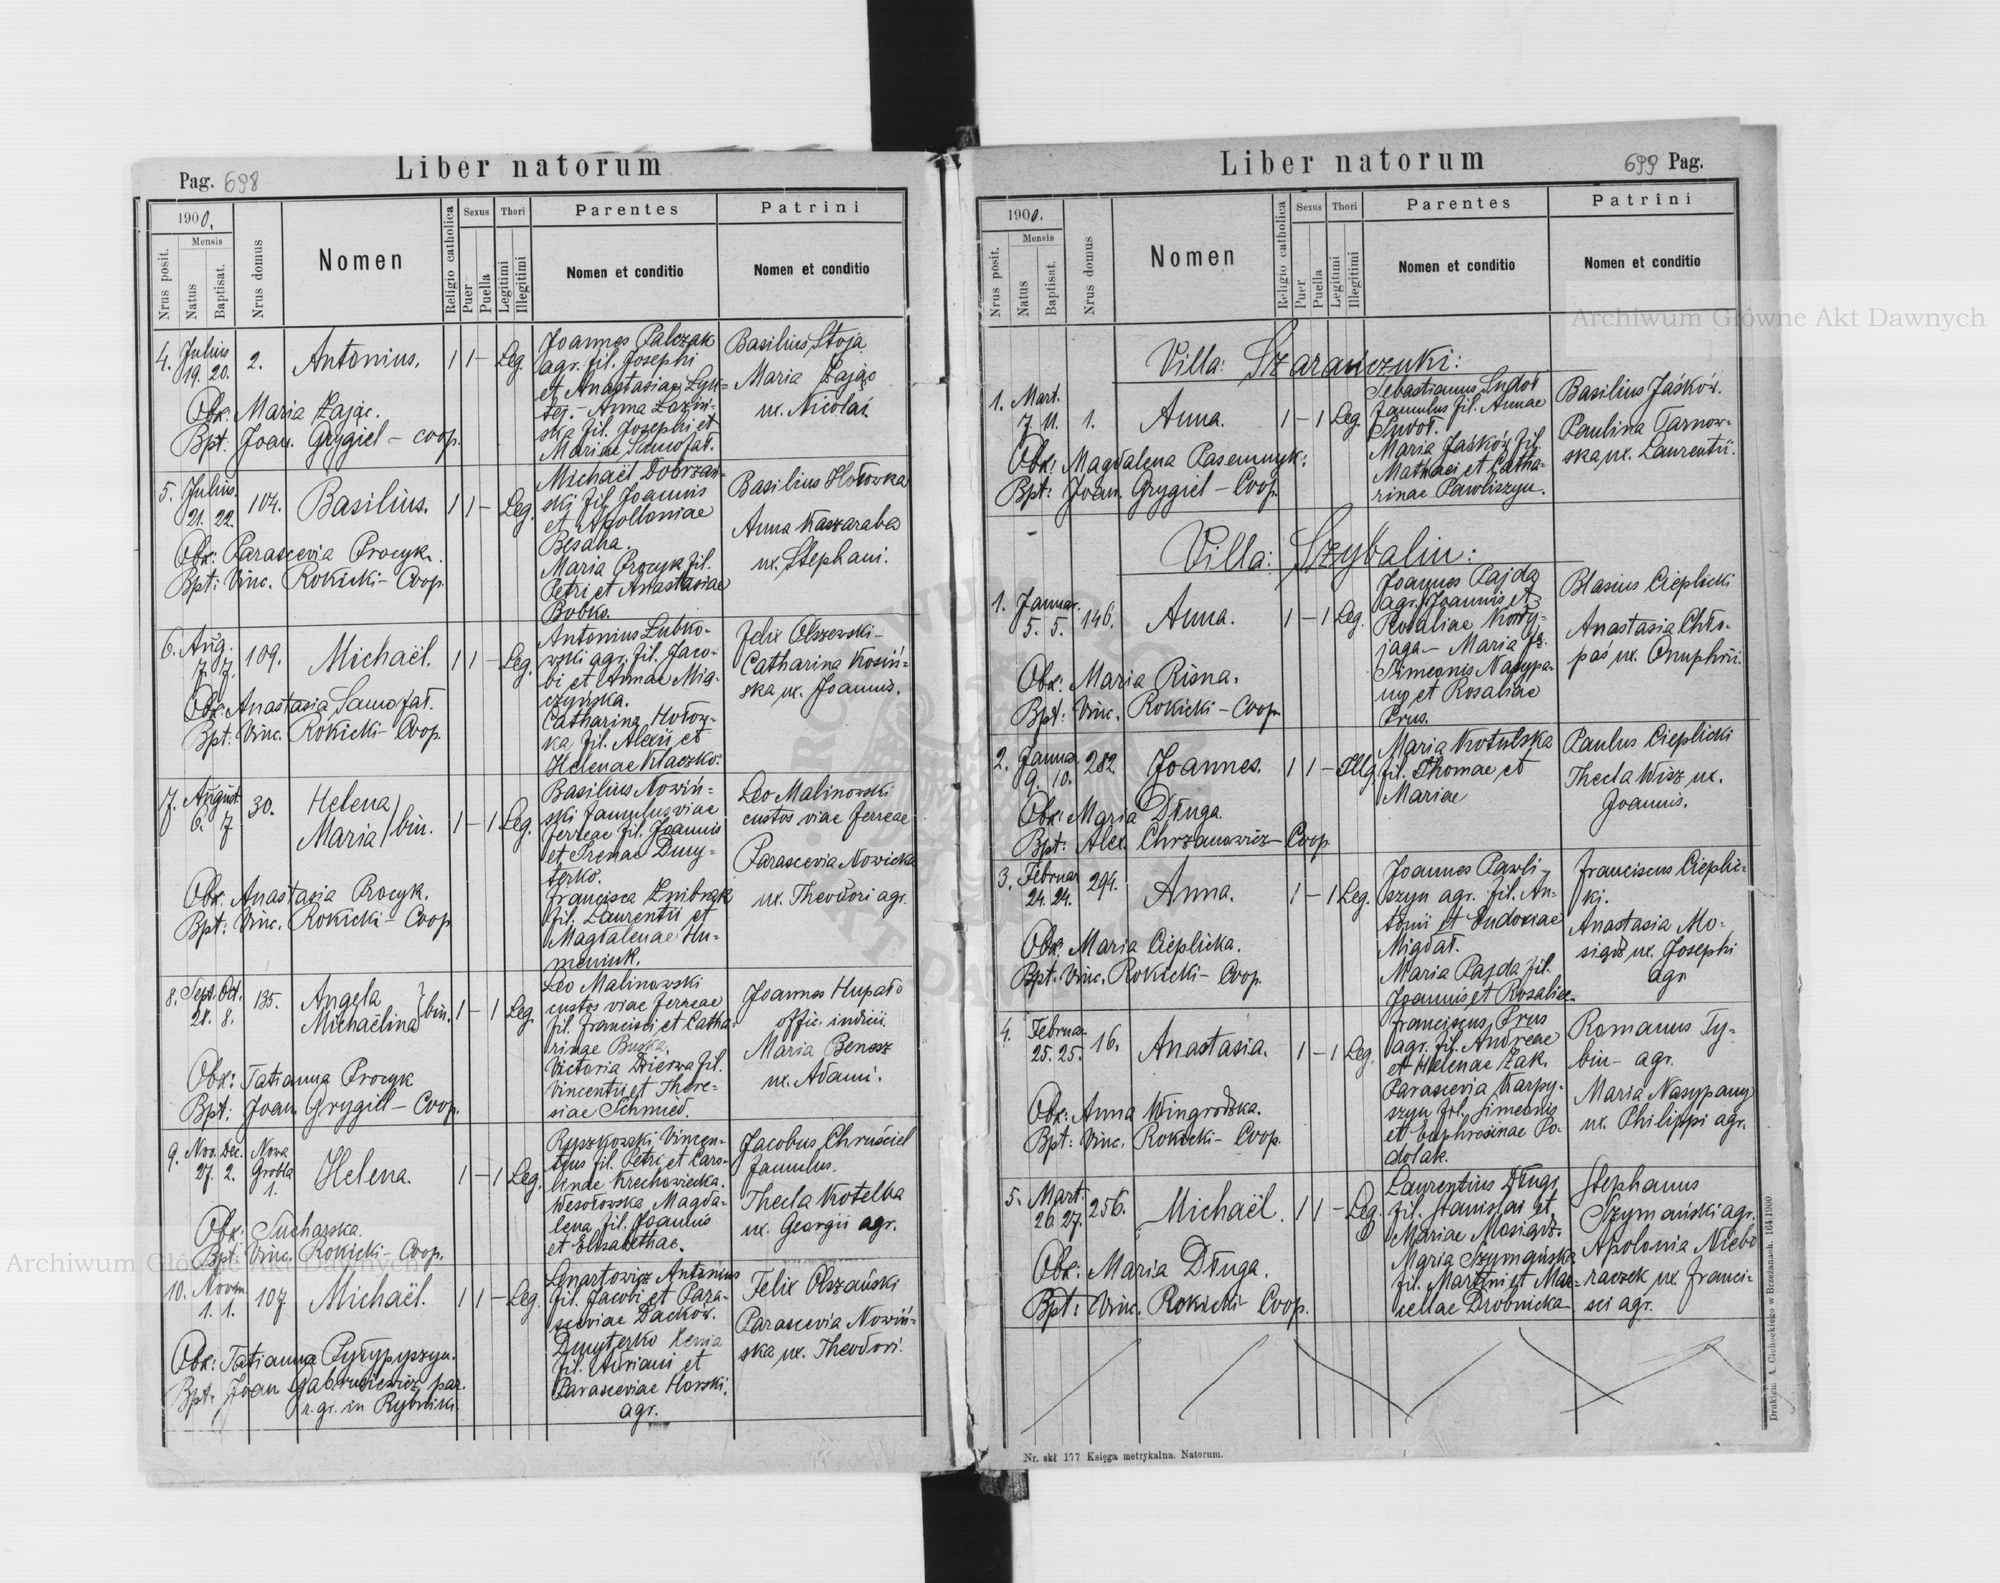 Liber natorum
Pag. 698
1900.
Nrus posit.
Mensis
Natus
Baptisat.
Nrus domus
Nomen
Religio catholica
Sexus
Puer
Puella
Thori
Legitimi
Illegitimi
Parentes
Nomen et conditio
Patrini
Nomen et conditio
4. Julius 19. 20. 2. Antonius. 1 1 – Leg.
Joannes Palczak
agr. fil. Josephi
et Anastasiae
Anna
ska fil. Josephi et
Mariae Samofał.
Basilius Stoja
Maria Zając
ux. Nicolai.
Obx: Maria Zając.
Bpt. Joan. Grygiel – coop.
5. Julius. 21. 22. 104. Basilius. 1 1 – Leg.
Michaël Dobrzań-
ski fil. Joannis
et Apolloniae
Besaha.
Maria Procyk fil.
Petri et Anastasiae
Bobko.
Basilius Hołowka
Anna Kaszaraba
ux. Stephani.
Obx: Parascevia Procyk.
Bpt: Vinc. Rokicki – Coop.
6. Aug. 7. 7. 109. Michaël. 1 1 – Leg.
Antonius Lubko-
wski agr. fil. Jaco-
bi et Annae Mią-
czyńska.
Catharina Hołow-
ka fil. Alexii et
Helenae Klaczko.
Felix Olszewski –
Catharina Kosiń-
ska ux. Joannis.
Obx: Anastasia Samofał.
Bpt: Vinc. Rokicki – Coop.
7. August. 6. 7. 30. Helena Maria bin. 1 – 1 Leg.
Basilius Nowiń-
ski famulus viae
ferreae fil. Joannis
et Irenae Dmy-
terko.
Francisca Żmibrak
fil. Laurentii et
Magdalenae Hu-
meniuk.
Leo Malinowski
custos viae ferreae
Parascevia Nowicka
ux. Theodori agr.
Obx. Anastasia Procyk.
Bpt: Vinc. Rokicki – Coop
8. Sept. Oct. 28. 8. 135. Angela Michaëlina bin. 1 – 1 Leg.
Leo Malinowski
custos viae ferreae
fil. Francisci et Catha-
rinae Buska.
Victoria Dzierwa fil.
Vincentii et There-
siae Schmied.
Joannes Hupało
offic. indicii.
Maria Benesz
ux. Adami.
Obx: Tatianna Procyk
Bpt: Joan. Grygiel – Coop.
9. Nov. Dec. 27. 2. Nowa Grobla 1. Helena. 1 – 1 Leg.
Ryszkowski Vincen-
tius fil. Petri et Caro-
linae Krechowiecka.
Wesołowska Magda-
lena fil. Joannis
et Elisabethae.
Jacobus Chruściel
famulus.
Thecla Kotelba
ux. Georgii agr.
Obx: Sucharska.
Bpt: Vinc. Rokicki – Coop.
10. Novem. 1. 1. 107. Michaël. 1 1 – Leg.
Lenartowicz Antonius
fil. Jacobi et Para-
sceviae Daćków.
Dmyterko Xenia
fil. Adriani et
Parasceviae Horski.
agr.
Felix Olszański
Parascevia Nowiń-
ska ux. Theodori.
Obx: Tatianna
Bpt. Joan Gabrusiewicz par.
r. gr. in Rybniki.
Liber natorum
699 Pag.
1900.
Nrus posit.
Mensis
Natus
Baptisat.
Nrus domus
Nomen
Religio catholica
Sexus
Puer
Puella
Thori
Legitimi
Illegitimi
Parentes
Nomen et conditio
Patrini
Nomen et conditio
Villa: Szarańczuki:
1. Mart. 7. 11. 1. Anna. 1 – 1 Leg.
Sebastianus Sudoł
famulus fil. Annae
Sudoł.
Maria Jaśków fil.
Mathaei et Catha-
rinae Pawliszyn.
Basilius Jaśków.
Paulina Tarnow-
ska, ux. Laurentii.
Obx: Magdalena Pasemnyk.
Bpt: Joan. Grygiel – Coop.
Villa: Szybalin:
1. Januar. 5. 5. 146. Anna. 1 – 1 Leg.
Joannes Pajda
agr. Joannis et
Rosaliae Kordy-
jaga – Maria fil.
Simeonis Nasypa-
ny et Rosaliae
Prus.
Blasius Cieplicki
Anastasia Chło-
paś ux. Onuphrii.
Obx: Maria Risna.
Bpt: Vinc. Rokicki – Coop.
2. Januar 9. 10. 282 Joannes. 1 1 – Illg.
Maria Kotulska
fil. Thomae et
Mariae
Paulus Cieplicki
Thecla Wisz ux.
Joannis.
Obx: Maria Długa.
Bpt: Alex. Chrzanowicz – Coop
3. Februar 24. 24. 294. Anna. 1 – 1 Leg.
Joannes Pawli-
szyn agr. fil. An-
tonii et Eudoxiae
Migdał.
Maria Pajda fil.
Joannis et Rosaliae.
Franciscus Cieplic-
ki.
Anastasia Mo-
sigdz ux. Josephi
agr.
Obx. Maria Cieplicka.
Bpt. Vinc. Rokicki – Coop.
4. Februar. 25. 25. 16. Anastasia. 1 – 1 Leg.
Franciscus Prus
agr. fil. Andreae
et Helenae Żak.
Parascevia Karpy-
szyn fil. Simeonis
et Euphrosinae Po-
dolak.
Romanus Ty-
bin – agr.
Maria Nasypany
ux. Philippi agr.
Obx: Anna Wingrodzka.
Bpt: Vinc. Rokicki – Coop.
5. Mart. 26. 27. 256. Michaël. 1 1 – Leg.
Laurentius Długi
fil. Stanislai et
Mariae Mosigdz.
Maria Szymańska
fil. Martini et Mar-
cellae Drobnicka
Stephanus
Szymański agr.
Apolonia Niebo
raczek ux. Franci-
sci agr.
Obx: Maria Długa.
Bpt: Vinc. Rokicki – Coop.
Nr. skł 177 Księga metrykalna. Natorum.
Archiwum Główne Akt Dawnych
Archiwum Główne Akt Dawnych